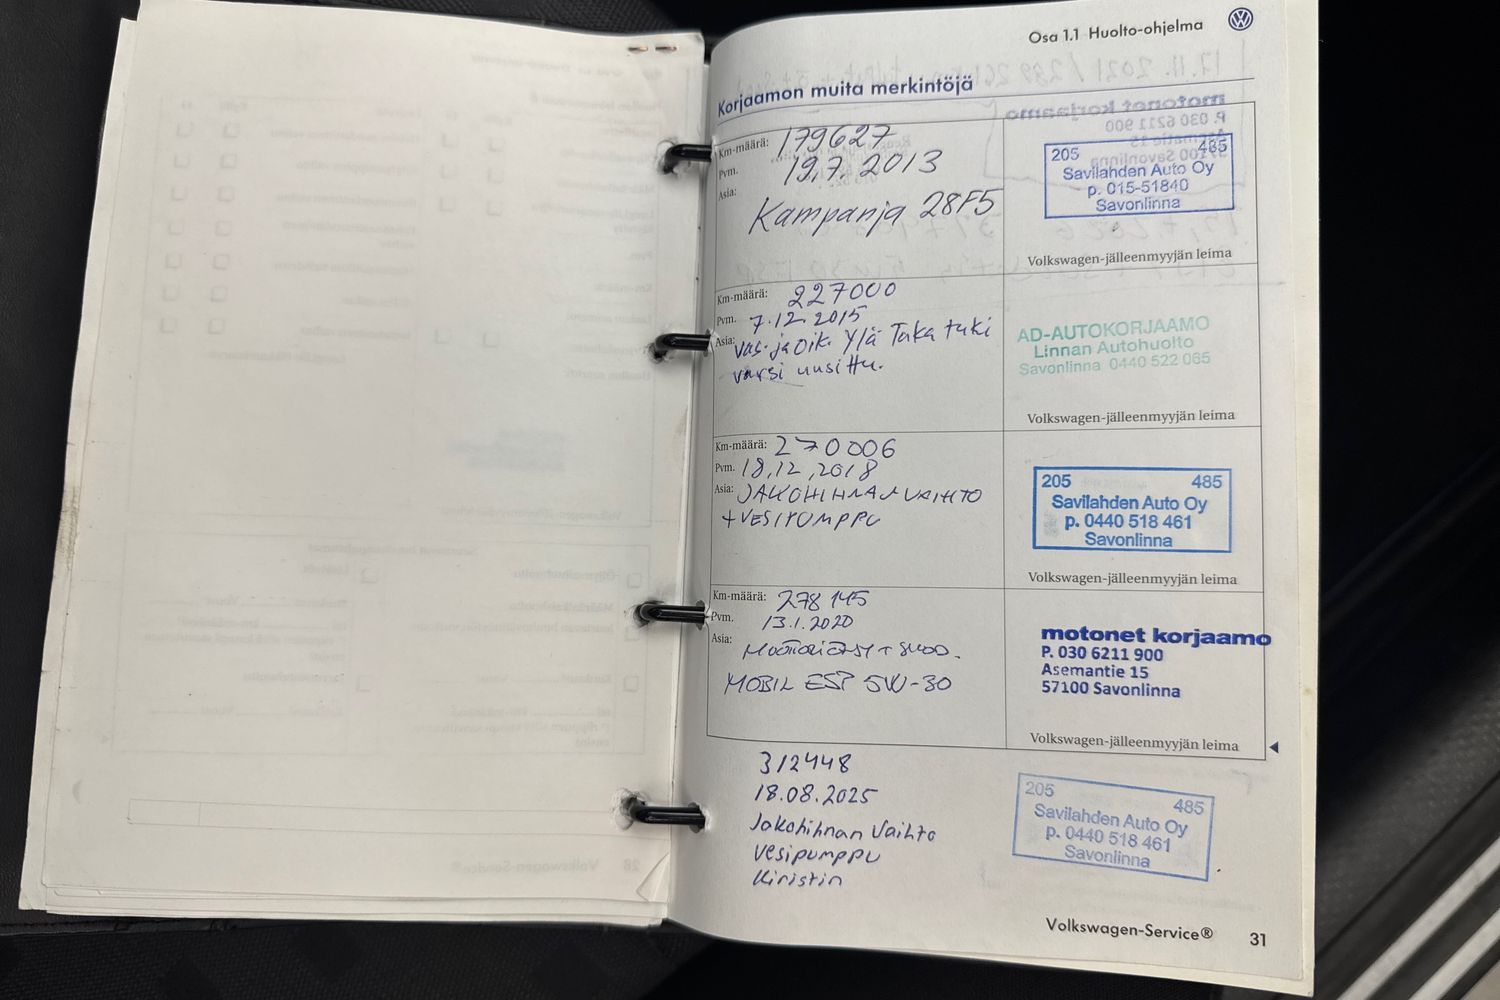 Osa 1.1 Huolto-ohjelma
Korjaamon muita merkintöjä
Km-määrä: 179627
Pvm. 19.7.2013
Asia: Kampanja 28F5
205 485
Savilahden Auto Oy
p. 015-51840
Savonlinna
Volkswagen-jälleenmyyjän leima
Km-määrä: 227000
Pvm. 7.12.2015
Asia: Vas. ja Oik. Ylä Taka tuki
varsi uusittu.
AD-AUTOKORJAAMO
Linnan Autohuolto
Savonlinna 0440 522 065
Volkswagen-jälleenmyyjän leima
Km-määrä: 270006
Pvm. 18.12.2018
Asia: JAKOHIHNAN VAIHTO
+ VESIPUMPPU
205 485
Savilahden Auto Oy
p. 0440 518 461
Savonlinna
Volkswagen-jälleenmyyjän leima
Km-määrä: 278145
Pvm. 13.1.2020
Asia:
MOBIL ESP 5W-30
motonet korjaamo
P. 030 6211 900
Asemantie 15
57100 Savonlinna
Volkswagen-jälleenmyyjän leima
312448
18.08.2025
Jakohihnan Vaihto
Vesipumppu
Kiristin
205 485
Savilahden Auto Oy
p. 0440 518 461
Savonlinna
Volkswagen-Service® 31